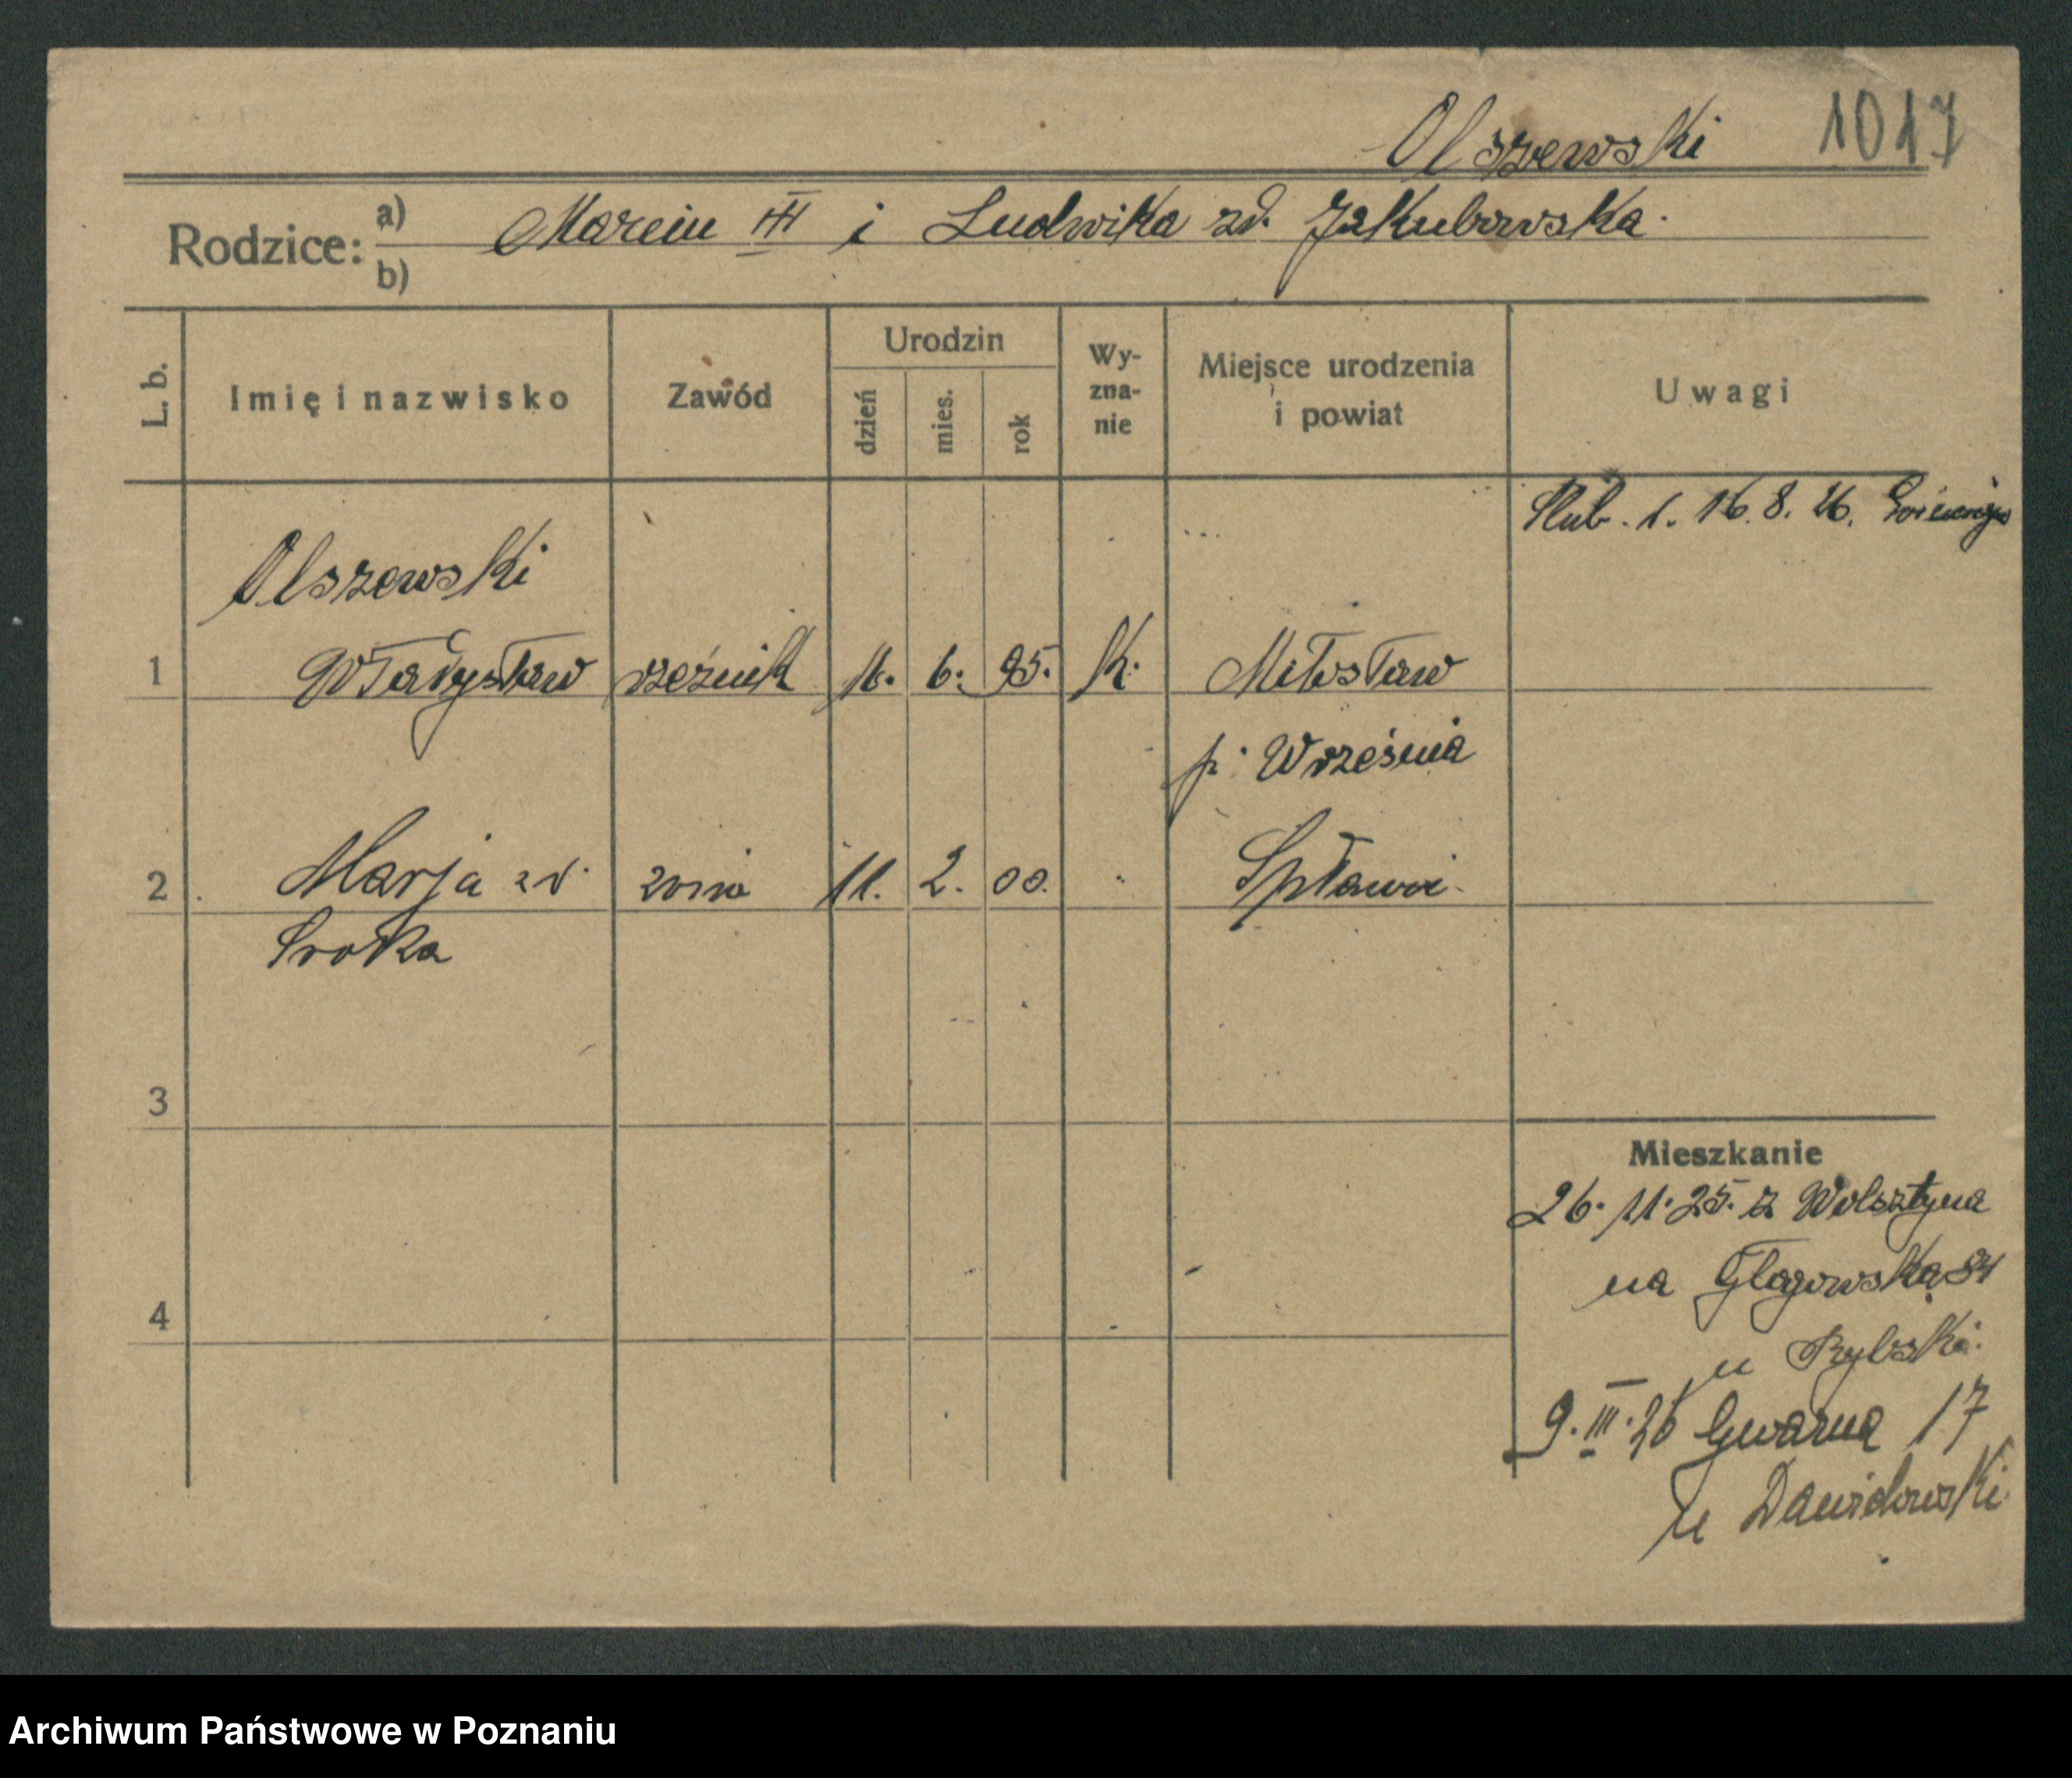 Olszewski 1017
Rodzice: a) Marcin III i Ludwika zd. Jakubowska.
b)
L. b.
Imię i nazwisko
Zawód
Urodzin
dzień
mies.
rok
Wy-
zna-
nie
Miejsce urodzenia
i powiat
Uwagi
Ślub. 1. 16. 8. 26.
Olszewski
1 Władysław rzeźnik 6. 95. K. Miłosław
p. Września
2 Marja zd. żona 11. 2. 00. "
Sroka
3
Mieszkanie
26. 11. 25. z Wolsztyna
na Głogowska 84
u Rybski.
4
9. III. 26 Gwarna 17
u Dawidowski
Archiwum Państwowe w Poznaniu